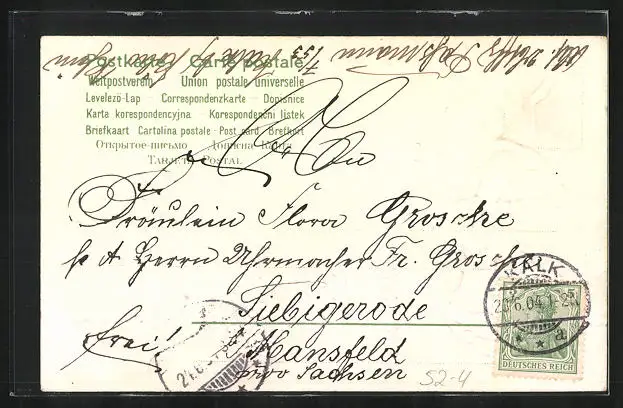 Postkarte Carte postale
Weltpostverein Union postale universelle
Levelező-Lap Correspondenzkarte Dopisnice
Karta korespondencyjna Korespondenční listek
Briefkaart Cartolina postale Post card Brefkort
Открытое-письмо Дописна Карта
Tarjeta Postal
An
Fräulein Flora Groschke
p. A Herrn Uhrmacher Fr. Grosch
Siebigerode
frei! Mansfeld
Prov Sachsen
52-4
KALK
20.6.04.1-2N
DEUTSCHES REICH